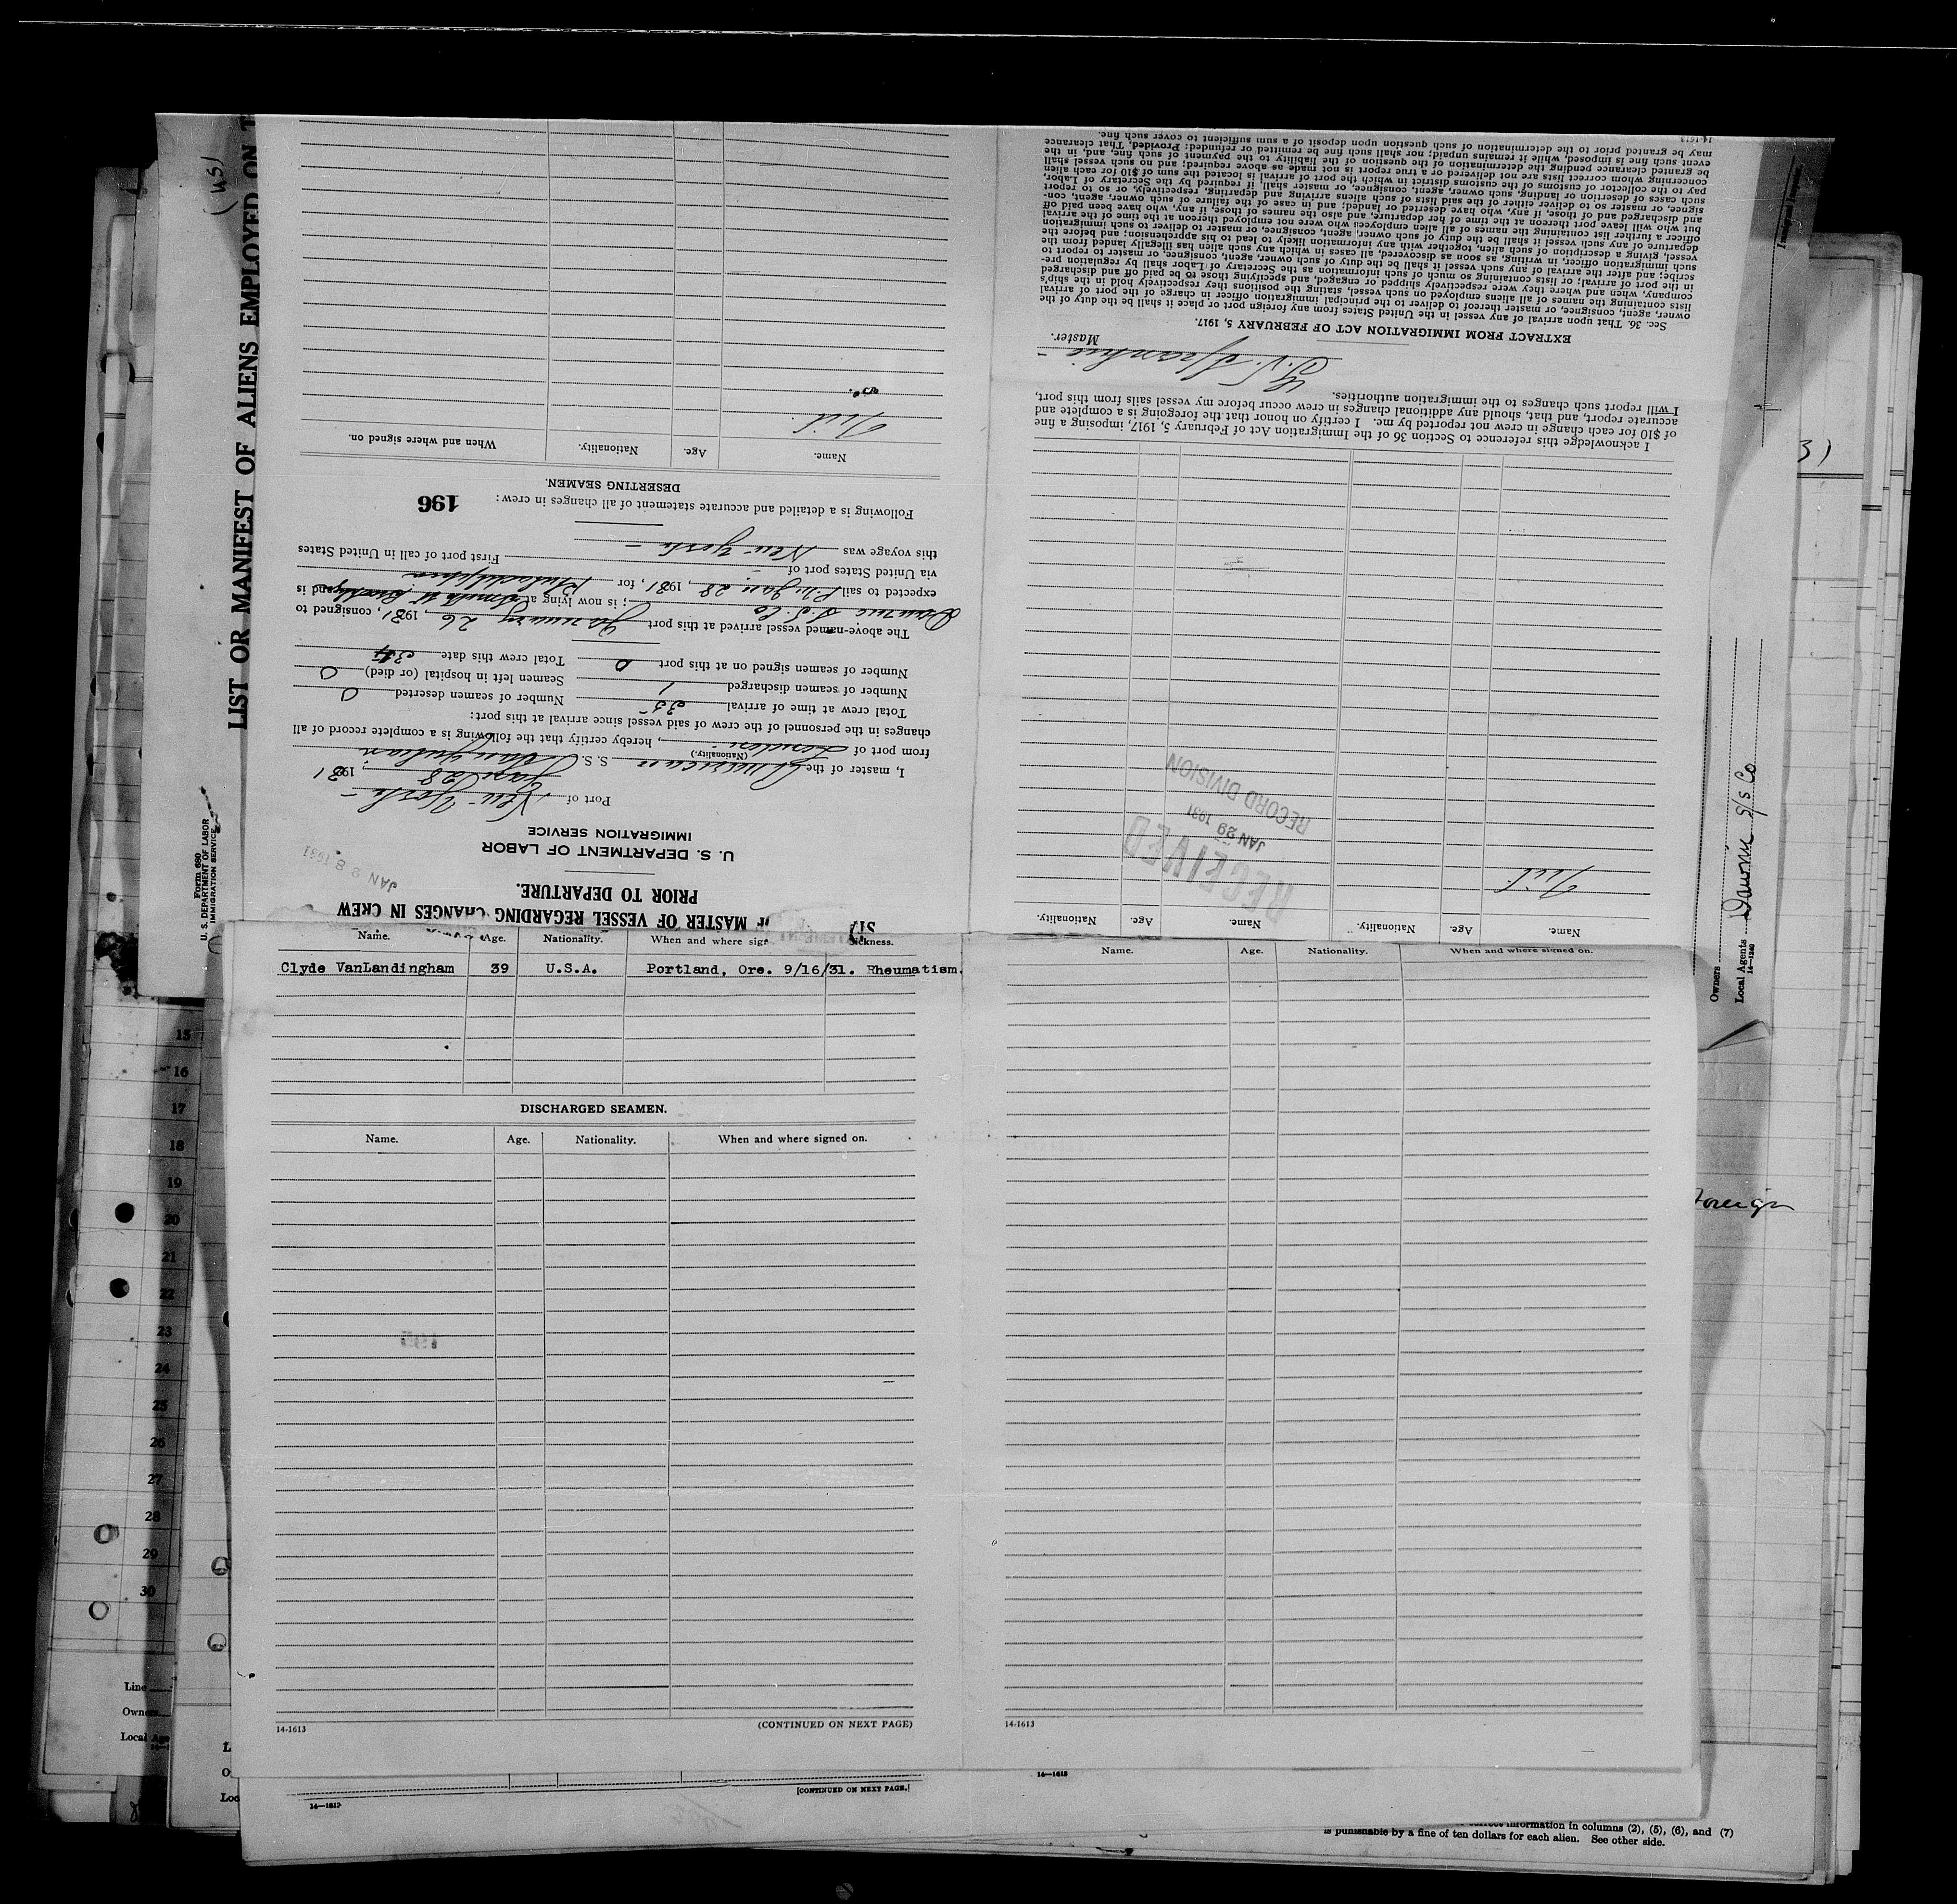 (us)
LIST OR MANIFEST OF ALIENS EMPLOYED ON
Form 680
U. S. DEPARTMENT OF LABOR
IMMIGRATION SERVICE
MASTER OF VESSEL REGARDING CHANGES IN CREW
PRIOR TO DEPARTURE.
JAN 28 1931
U. S. DEPARTMENT OF LABOR
IMMIGRATION SERVICE
Port of New York
Jan 28, 1931
I, master of the American S. S. San Julian
(Nationality.)
from port of London, hereby certify that the following is a complete record of all
changes in the personnel of the crew of said vessel since arrival at this port:
Total crew at time of arrival 35 Number of seamen deserted 0
Number of seamen discharged 1 Seamen left in hospital (or died) 0
Number of seamen signed on at this port 0 Total crew this date 34
The above-named vessel arrived at this port January 26, 1931, consigned to
S.S. Co; is now lying at and is
expected to sail P.M. Jan. 28, 1931, for Philadelphia
via United States port of First port of call in United States
this voyage was New York
Following is a detailed and accurate statement of all changes in crew:
196
DESERTING SEAMEN.
Name. Age. Nationality. When and where signed on.
Nil
Name. Age. Nationality. Name. Age. Nationality.
Nil
RECEIVED
JAN 29 1931
RECORD DIVISION
I acknowledge this reference to Section 36 of the Immigration Act of February 5, 1917, imposing a fine
of $10 for each change in crew not reported by me. I certify on honor that the foregoing is a complete and
accurate report, and that, should any additional changes in crew occur before my vessel sails from this port,
I will report such changes to the immigration authorities.
Master.
EXTRACT FROM IMMIGRATION ACT OF FEBRUARY 5, 1917.
Sec. 36. That upon arrival of any vessel in the United States from any foreign port or place it shall be the duty of the
owner, agent, consignee, or master thereof to deliver to the principal immigration officer in charge of the port of arrival
lists containing the names of all aliens employed on such vessel, stating the positions they respectively hold in the ship's
company, when and where they were respectively shipped or engaged, and specifying those to be paid off and discharged
in the port of arrival; or lists containing so much of such information as the Secretary of Labor shall by regulation pre-
scribe; and after the arrival of any such vessel it shall be the duty of such owner, agent, consignee, or master to report to
such immigration officer, in writing, as soon as discovered, all cases in which any such alien has illegally landed from the
vessel, giving a description of such alien, together with any information likely to lead to his apprehension; and before the
departure of any such vessel it shall be the duty of such owner, agent, consignee, or master to deliver to such immigration
officer a further list containing the names of all alien employees who were not employed thereon at the time of the arrival
but who will leave port thereon at the time of her departure, and also the names of those, if any, who have been paid off
and discharged and of those, if any, who have deserted or landed; and in case of the failure of such owner, agent, con-
signee, or master so to deliver either of the said lists of such aliens arriving and departing, respectively, or so to report
such cases of desertion or landing, such owner, agent, consignee, or master shall, if required by the Secretary of Labor,
pay to the collector of customs of the customs district in which the port of arrival is located the sum of $10 for each alien
concerning whom correct lists are not delivered or a true report is not made as above required; and no such vessel shall
be granted clearance pending the determination of the question of the liability to the payment of such fine, and, in the
event such fine is imposed, while it remains unpaid; nor shall such fine be remitted or refunded: Provided, That clearance
may be granted prior to the determination of such question upon deposit of a sum sufficient to cover such fine.
14-1613
Name. Age. Nationality. When and where sig Sickness.
Clyde VanLandingham 39 U.S.A. Portland, Ore. 9/16/31. Rheumatism.
DISCHARGED SEAMEN.
Name. Age. Nationality. When and where signed on.
14-1613 (CONTINUED ON NEXT PAGE)
Name. Age. Nationality. When and where signed on.
14-1613
15
16
17
18
19
20
21
22
23
24
25
26
27
28
29
30
Line
Owners
Local Age
Owners
Local Agents S/S Co
14-1240
31
Foreign
14-1613
[CONTINUED ON NEXT PAGE.]
14-1613
information in columns (2), (5), (6), and (7)
is punishable by a fine of ten dollars for each alien. See other side.